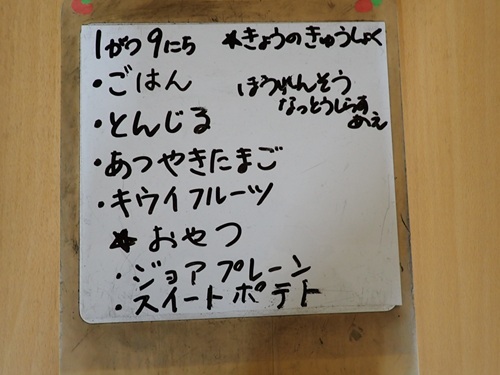 1がつ9にち ★きょうのきゅうしょく
・ごはん
・とんじる
・あつやきたまご
・キウイフルーツ
ほうれんそう
なっとうしらす
あえ
★おやつ
・ジョアプレーン
・スイートポテト